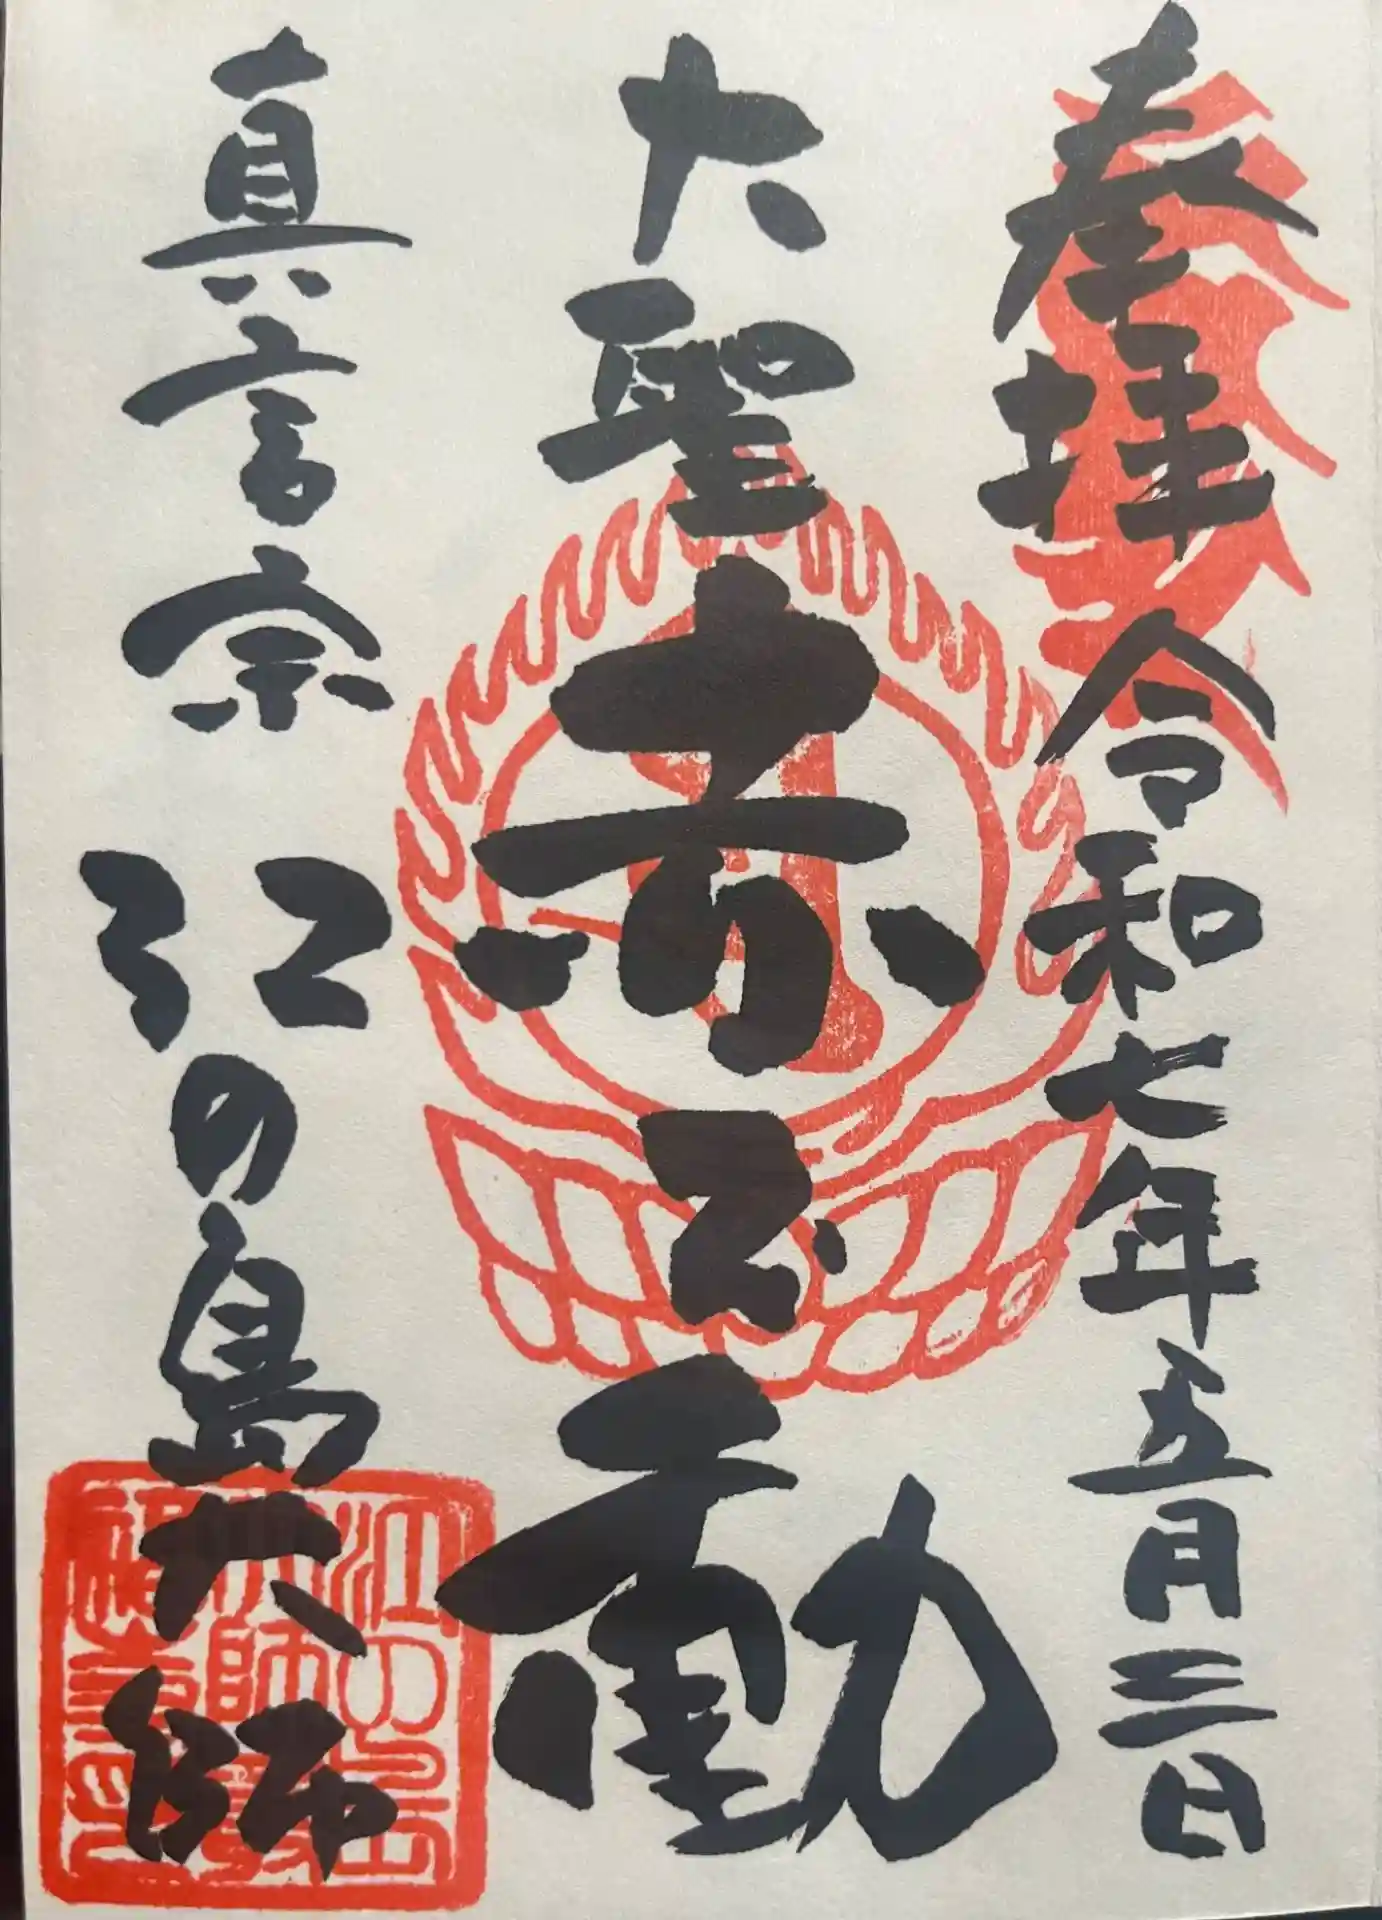 奉拝 令和七年五月三日
大聖赤不動
真言宗 江の島大師